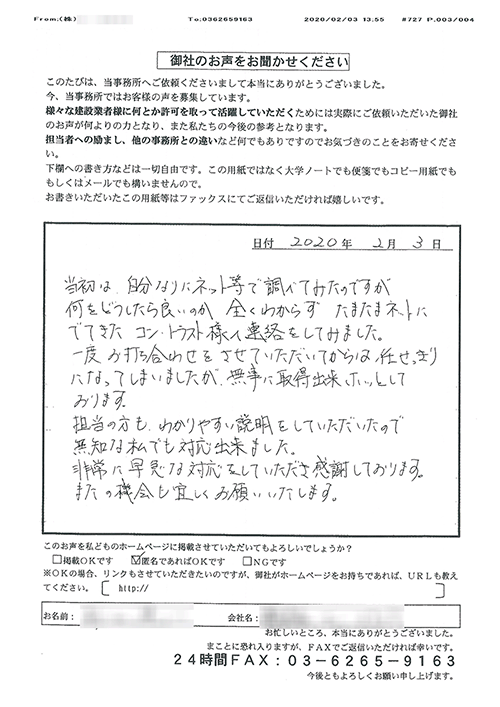 From:(株)　To:0362659163　2020/02/03 13:55　#727 P.003/004
御社のお声をお聞かせください
このたびは、当事務所へご依頼くださいまして本当にありがとうございました。
今、当事務所ではお客様の声を募集しています。
様々な建設業者様に何とか許可を取って活躍していただくためには実際にご依頼いただいた御社
のお声が何よりの力となり、また私たちの今後の参考となります。
担当者への励まし、他の事務所との違いなど何でもありですのでお気づきのことをお寄せくださ
い。
下欄への書き方などは一切自由です。この用紙ではなく大学ノートでも便箋でもコピー用紙でも
もしくはメールでも構いませんので。
お書きいただいたこの用紙等はファックスにてご返信いただければ嬉しいです。
日付 2020年 2月 3日
当初は、自分なりにネット等で調べてみたのですが
何をどうしたら良いのか 全くわからず たまたまネットに
でてきた コン・トラスト様へ連絡をしてみました。
一度お打ち合わせをさせていただいてからは、任せっきり
になってしまいましたが、無事に取得出来、ホッとして
おります。
担当の方も、わかりやすい説明をしていただいたので
無知な私でも対応出来ました。
非常に早急な対応をしていただき感謝しております。
またの機会も宜しくお願いいたします。
このお声を私どものホームページに掲載させていただいてもよろしいでしょうか？
□掲載OKです　☑匿名であればOKです　□NGです
※OKの場合、リンクもさせていただきたいのですが、御社がホームページをお持ちであれば、URLも教え
てください。［ http://　］
お名前：　会社名：
お忙しいところ、本当にありがとうございました。
まことに恐れ入りますが、FAXでご返信いただければ幸いです。
24時間FAX：03-6265-9163
今後ともよろしくお願い申し上げます。